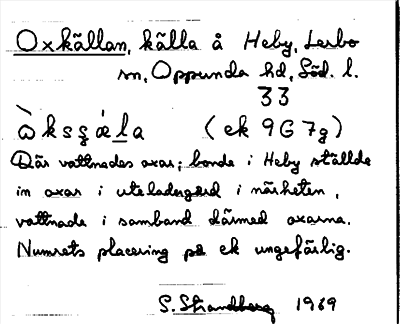 Oxkällan, källa å Heby, Lerbo
sn, Oppunda hd, Söd. l.
33
òksşǽla (ek 9G7g)
Där vattnades oxar; bonde i Heby ställde
in oxar i uteladugård i närheten,
vattnade i samband därmed oxarna.
Numrets placering på ek ungefärlig.
S. Strandberg 1969